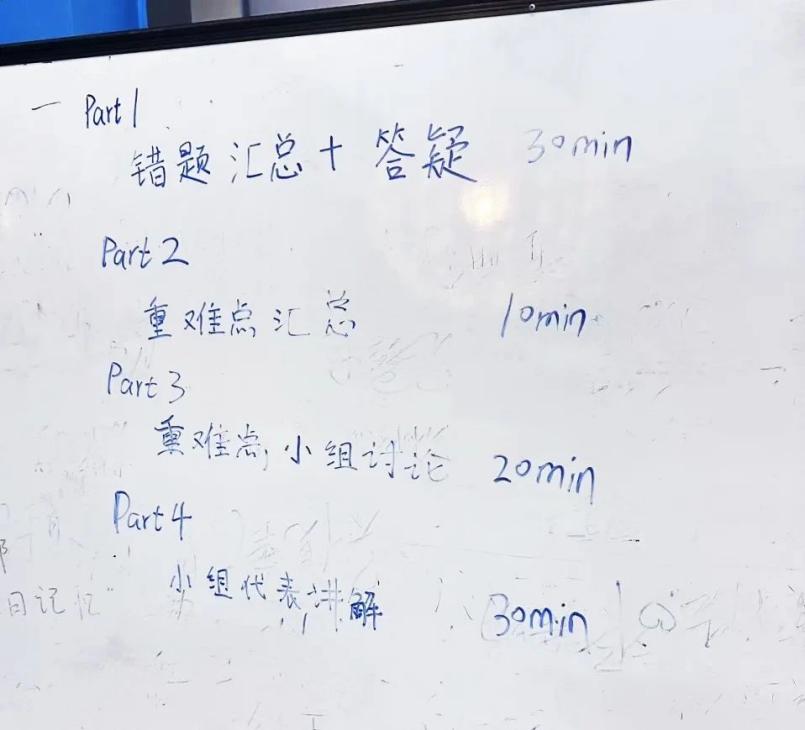 一 Part 1
错题汇总+答疑 30min
Part 2
重难点汇总 10min
Part 3
重难点,小组讨论 20min
Part 4
小组代表讲解 30min
日记忆"